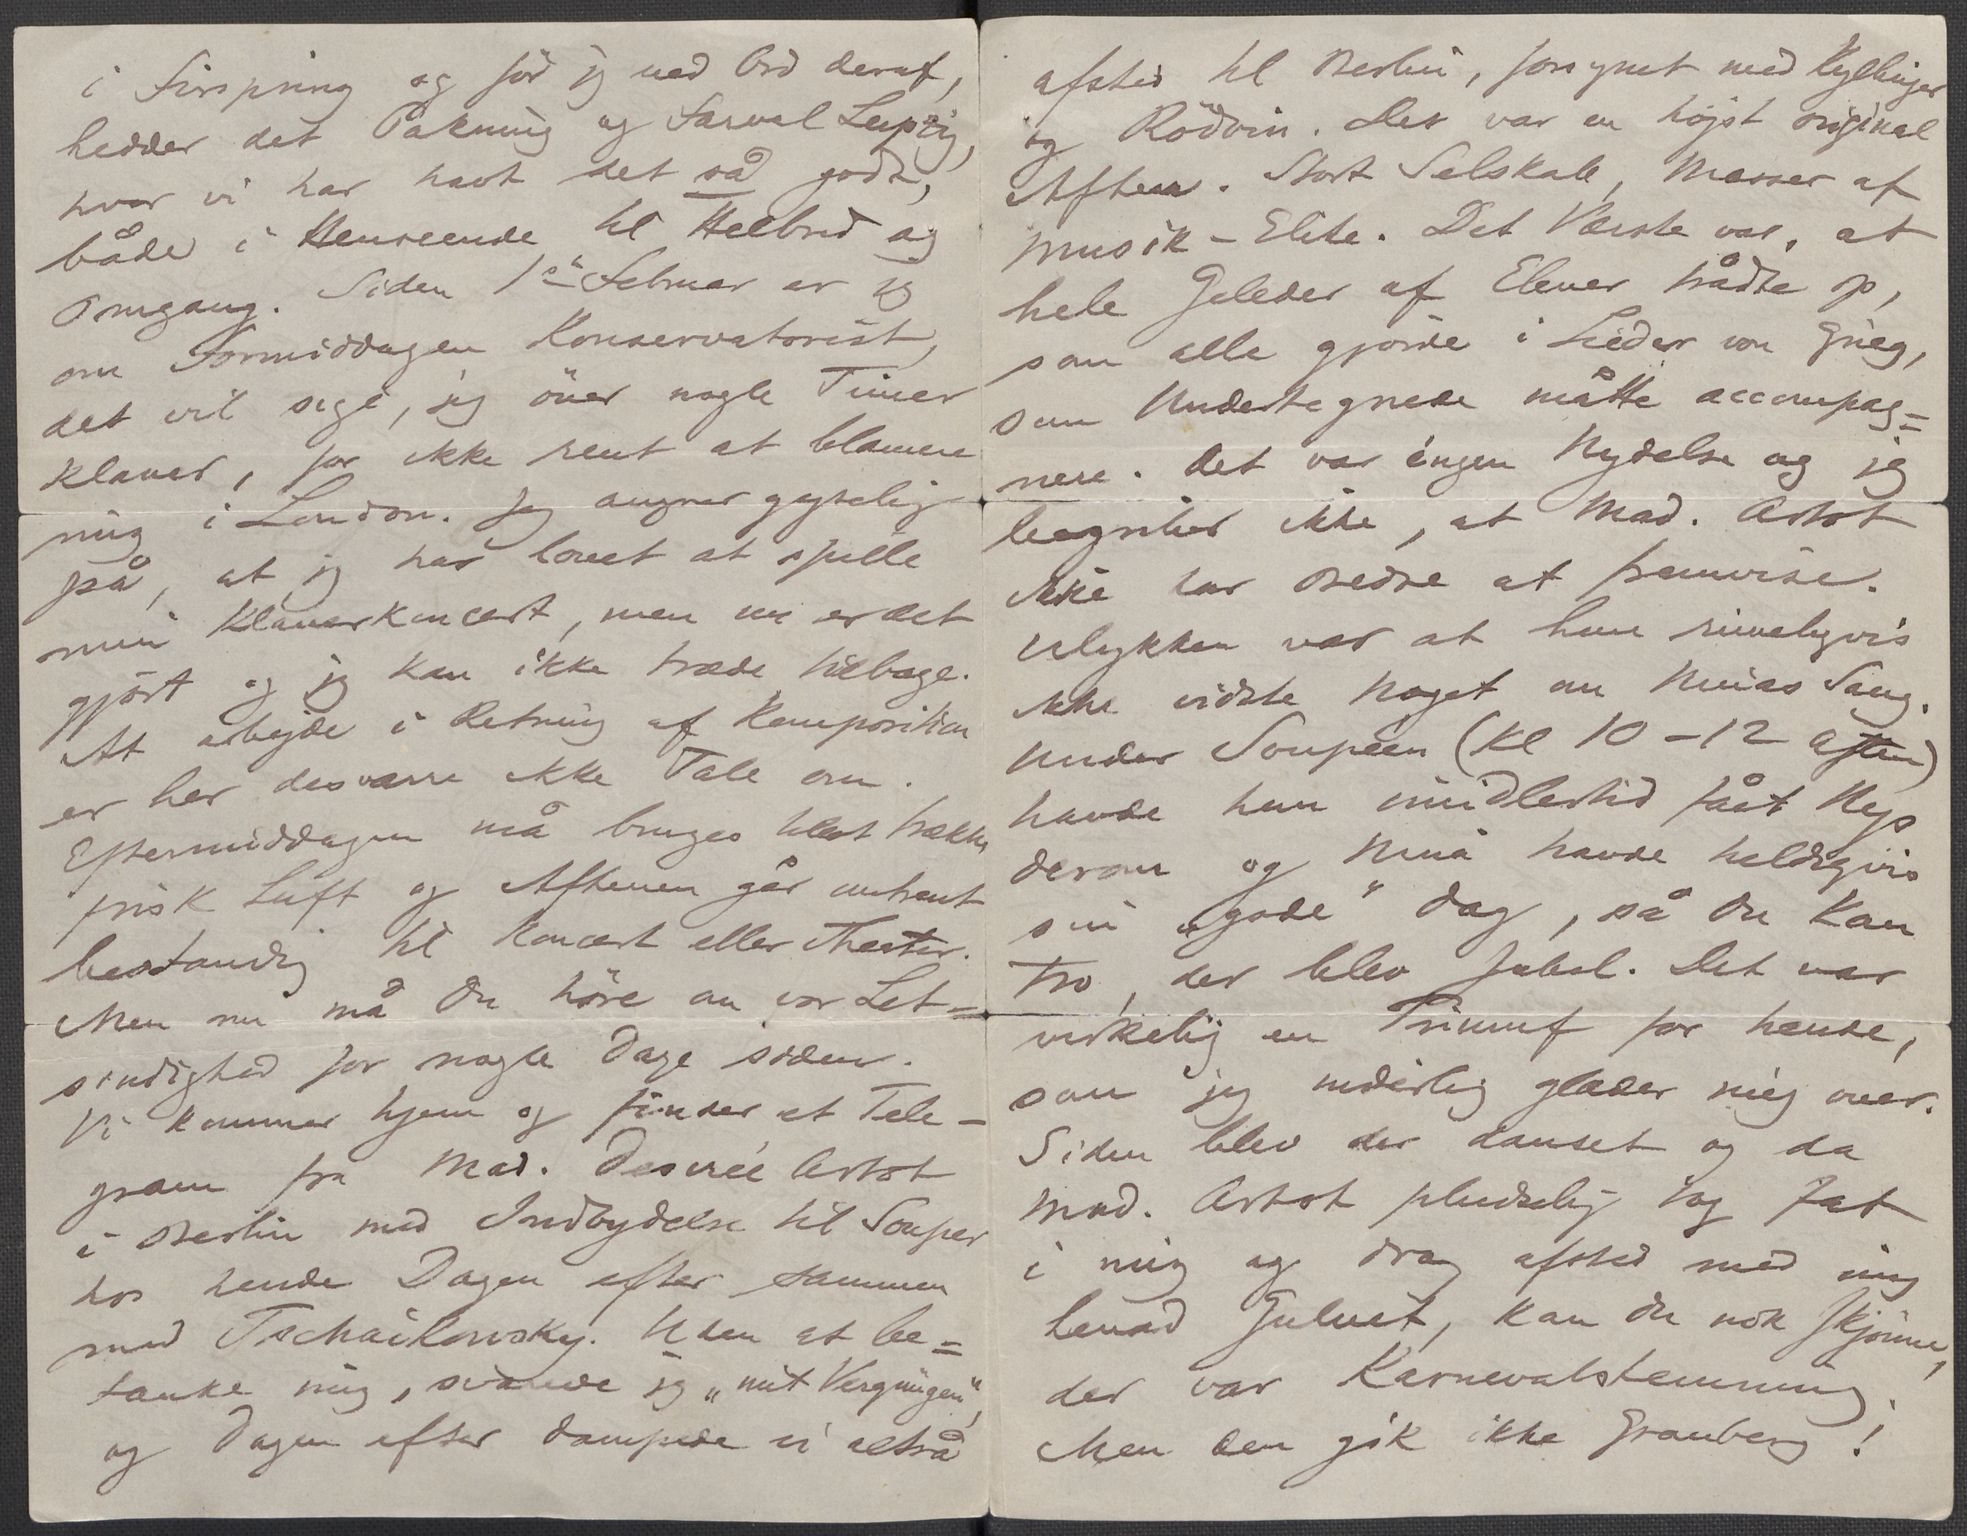 i Firspring og før jeg ved Ord deraf,
hedder det Pakning og Farvel Leipzig,
hvor vi har havt det så godt,
både i Henseende til Helbred og
Omgang. Siden 1ste Februar er jeg
om Formiddagen Konservatorist,
det vil sige, jeg över nogle Timer
Klaver, for ikke rent at blamere
mig i London. Jeg angrer gyselig
på, at jeg har lovet at spille
min Klaverkoncert, men nu er det
gjört og jeg kan ikke træde tilbage.
At arbejde i Retning af Komposition
er her desværre ikke Tale om.
Eftermiddagen må bruges til at trække
frisk Luft og Aftenen går omtrent
bestandig til Koncert eller Theater.
Men nu må Du höre om vor Let=
sindighed for nogle Dage siden.
Vi kommer hjem og finder et Tele-
gram fra Mad. Desirée Artôt
i Berlin med Indbydelse til Souper
hos hende Dagen efter sammen
med Tschaikowsky. Uden at be=
tænke mig, svarede jeg „mit Vergnügen",
og Dagen efter dampede vi altså
afsted til Berlin, forsynet med Kyllinger
og Rödvin. Det var en höjst original
Aften. Stort Selskab, Masser af
Musik-Elite. Det Værste var, at
hele Geleder af Elever trådte op,
som alle gjorde i Lieder von Grieg,
som Undertegnede måtte accompag=
nere. Det var ingen Nydelse og jeg
begriber ikke, at Mad. Artôt
ikke har Bedre at fremvise.
Ulykken var at hun rimeligvis
ikke vidste Noget om Ninas Sang.
Under Soupéen (Kl 10-12 Aften)
havde hun imidlertid fået Nys
derom og Nina havde heldigvis
sin „gode" Dag, så Du kan
tro, der blev Jubel. Det var
virkelig en Triumf for hende,
som jeg inderlig glæder mig over.
Siden blev der danset og da
Mad. Artôt pludselig tog Fat
i mig og drog afsted med mig
henad Gulvet, kan Du nok skjönne,
der var Karnevalstemning.
Men den gik ikke Granberg!